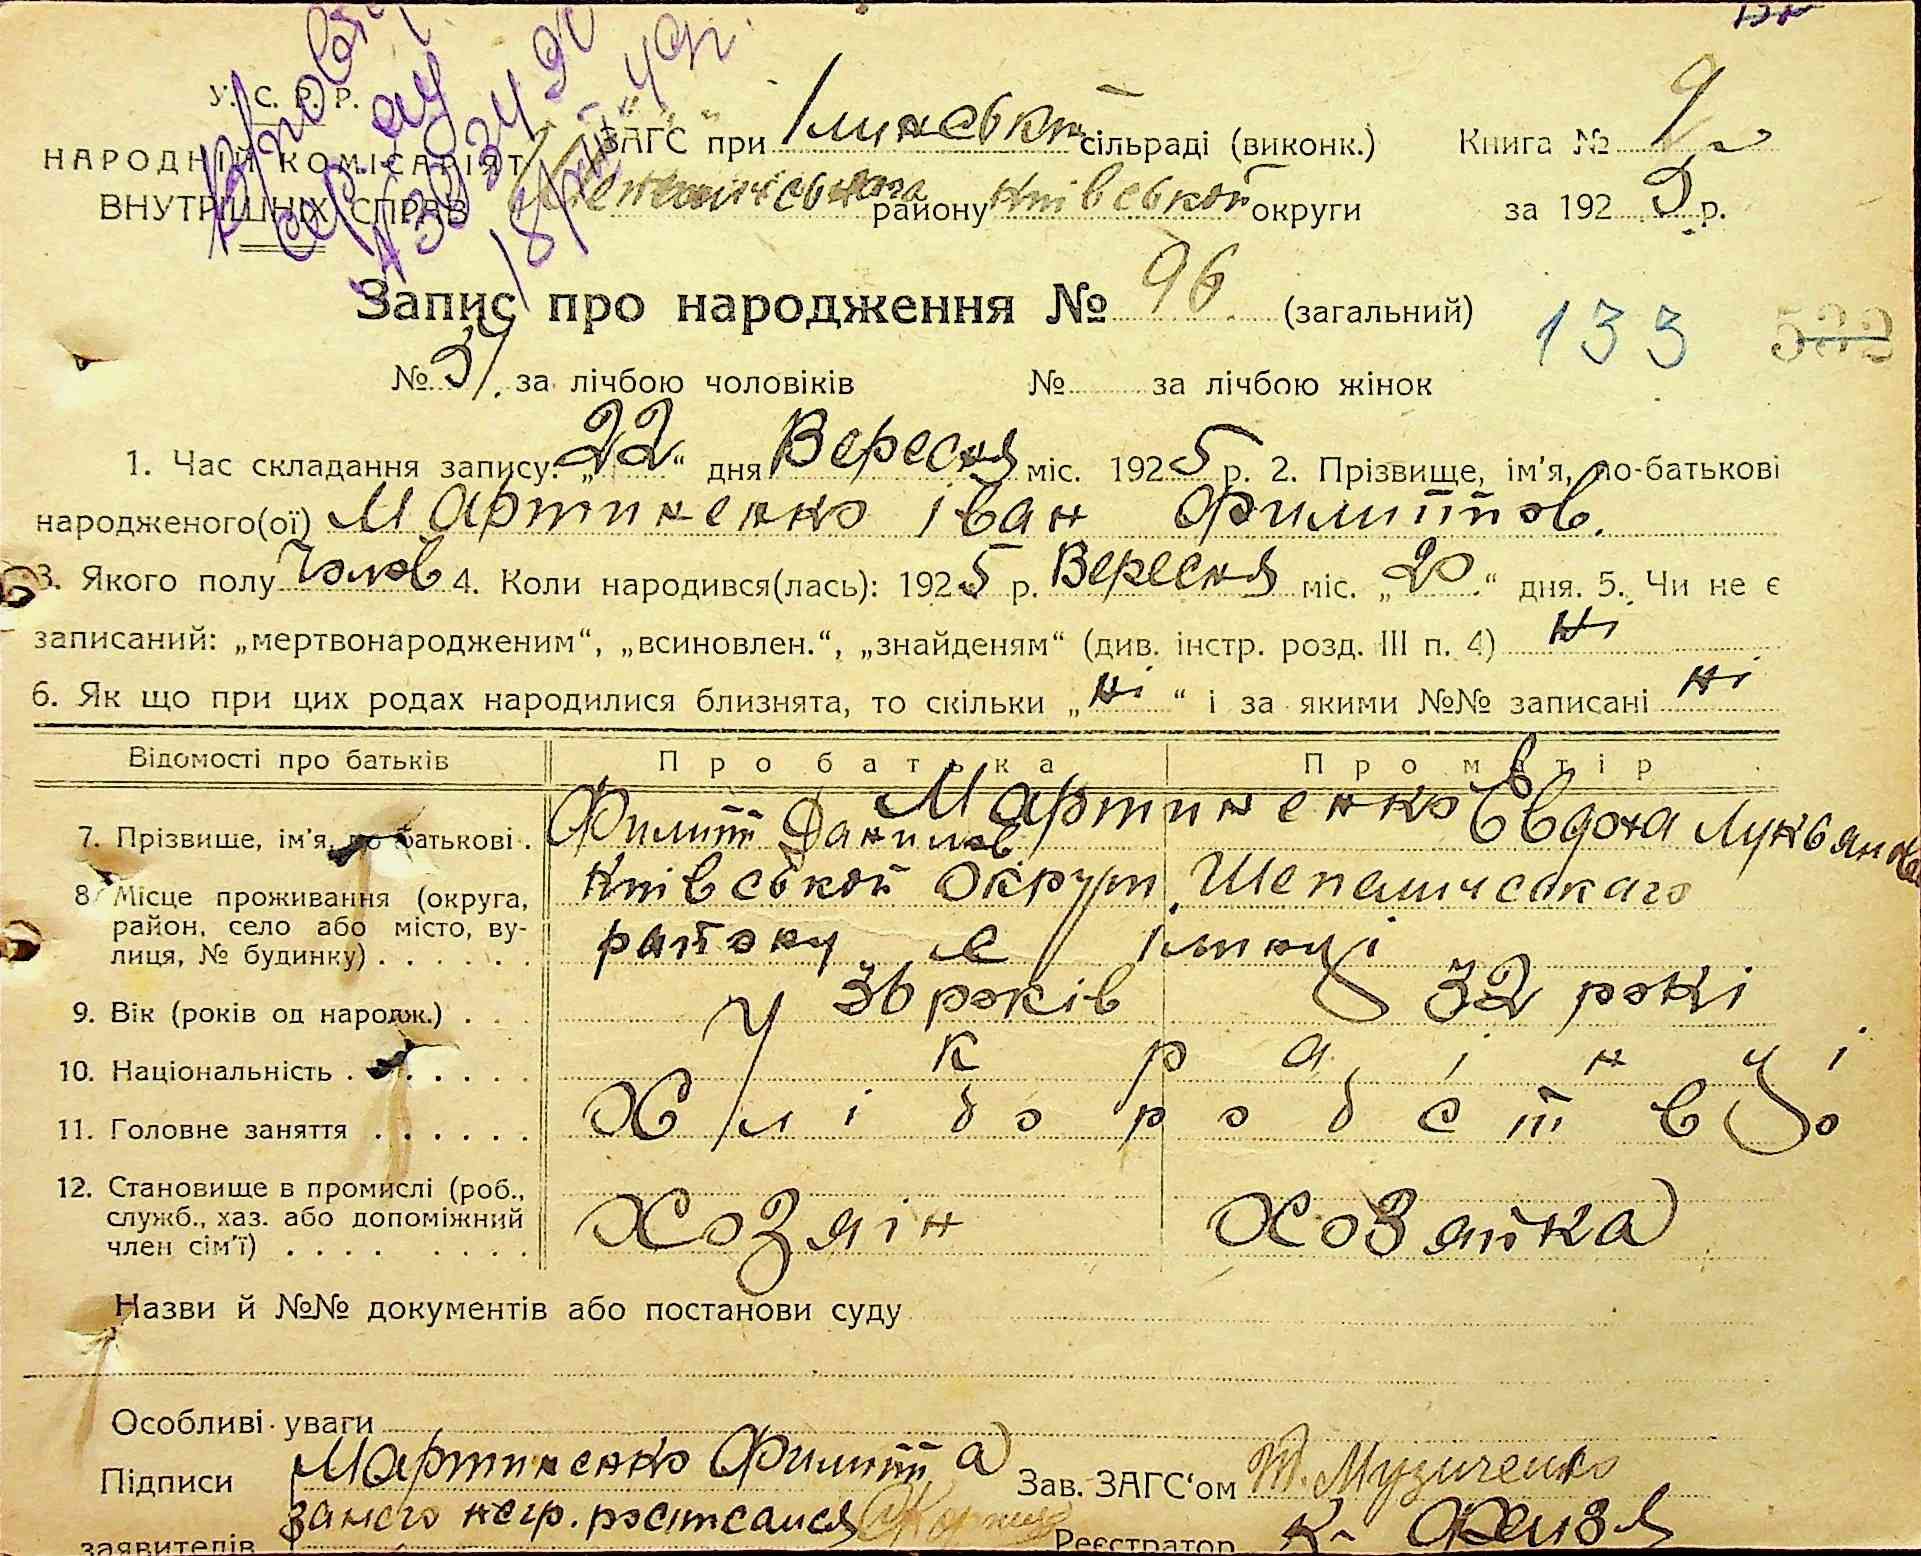 У. С. Р. Р.
НАРОДНІЙ КОМІСАРІЯТ
ВНУТРІШНІХ СПРАВ
ЗАГС при сільраді (виконк.)
району Київськой округи
Книга №
за 1925 р.
Запис про народження № 96 (загальний)
133
532
№ 51. за лічбою чоловіків № за лічбою жінок
1. Час складання запису: „22“ дня Вересня міс. 1925 р. 2. Прізвище, ім'я, по-батькові
народженого(ої) Мартиненко Іван Филипов.
3. Якого полу Чолов 4. Коли народився(лась): 1925 р. Вересня міс. „20“ дня. 5. Чи не є
записаний: „мертвонародженим“, „всиновлен.“, „знайденям“ (див. інстр. розд. III п. 4) Ні
6. Як що при цих родах народилися близнята, то скільки „Ні“ і за якими №№ записані Ні
Відомості про батьків Про батька Про матір
7. Прізвище, ім'я, по батькові. Мартиненко
Филип Данилов Евдоха Лукьянова
8. Місце проживання (округа, район, село або місто, вулиця, № будинку) Київськой Округи Шепелическаго
району с Ілинці
9. Вік (років од народж.) 36 років 32 рокі
10. Національність Українці
11. Головне заняття Хліборобство
12. Становище в промислі (роб., служб., хаз. або допоміжний член сім'ї) Хозяін Хозяйка
Назви й №№ документів або постанови суду
Особливі уваги
Підписи Мартиненко Филипа Зав. ЗАГС'ом Музиченко
заявителів негр. Реєстратор К.